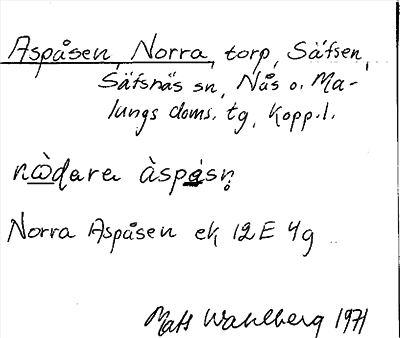 Aspåsen, Norra, torp, Säfsen,
Säfsnäs sn, Nås o. Ma-
lungs doms. tg, Kopp.l.
nὼḍara àspásn̥
Norra Aspåsen ek 12E 4g
Mats Wahlberg 1971